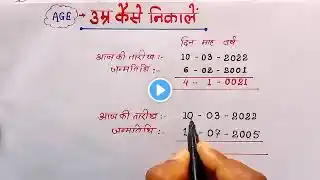 AGE → उम्र कैसे निकालें
दिन माह वर्ष
आज की तारीख :- 10 - 03 - 2022
जन्मतिथि :- 6 - 02 - 2001
4 - 1 - 0021
आज की तारीख :- 10 - 03 - 2022
जन्मतिथि :- - 07 - 2005